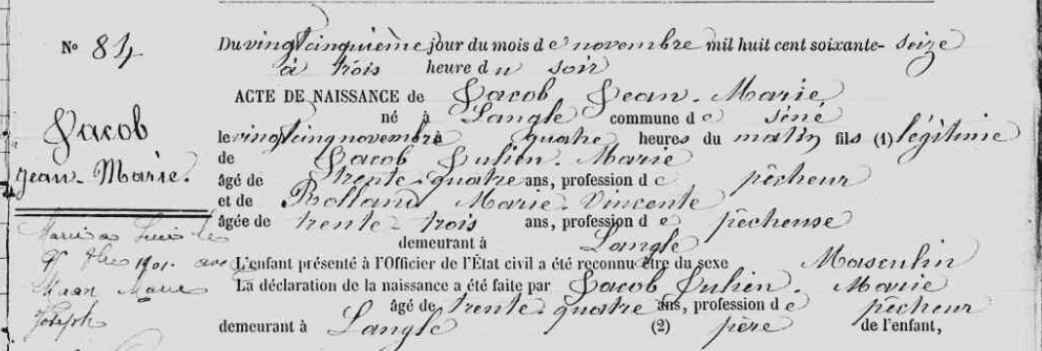 N° 84
Du vingt cinquième jour du mois de novembre mil huit cent soixante-seize
à trois heure du soir
ACTE DE NAISSANCE de Jacob Jean-Marie
né à Langle commune de Séné
le vingt cinq novembre à quatre heures du matin fils (1) légitime
de Jacob Julien-Marie
âgé de trente-quatre ans, profession de pêcheur
et de Rolland Marie-Vincente
âgée de trente-trois ans, profession de pêcheuse
demeurant à Langle
L'enfant présenté à l'Officier de l'État civil a été reconnu être du sexe Masculin
La déclaration de la naissance a été faite par Jacob Julien-Marie
âgé de trente-quatre ans, profession de pêcheur
demeurant à Langle (2) père de l'enfant,
Jacob
Jean-Marie.
Marié à
1901 avec
Marie
Joseph